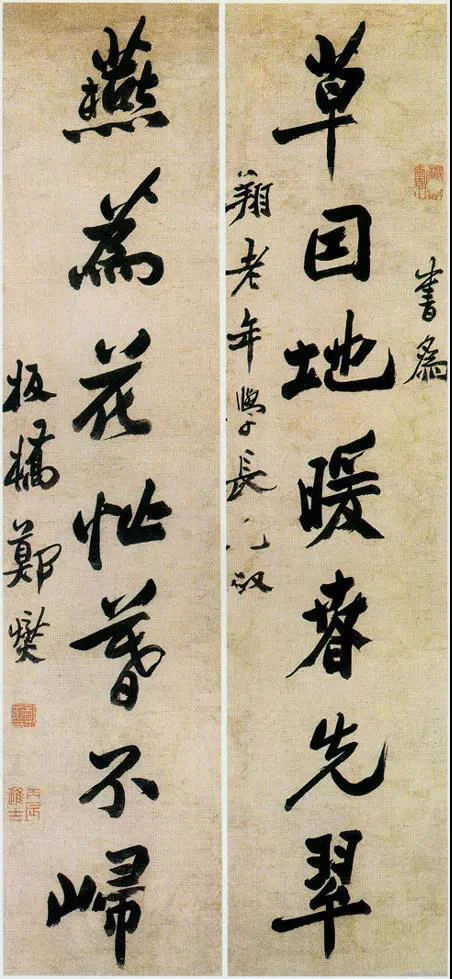 書為
草因地暖春先翠
翔老年學長兄政
燕為花忙暮不歸
板橋鄭燮
丙辰進士